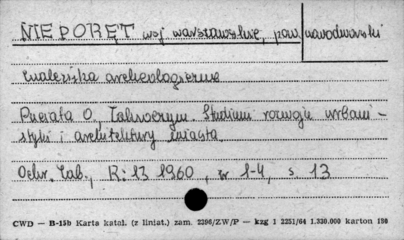 NIEPORĘT woj warszawskie, pow. nowodworski
Znaleziska archeologiczne
Puciata O, Zakroczym. Studium rozwoju urbani-
styki i architektury miasta
Ochr. Zab., R: 13 1960, nr 1-4, s. 13
CWD — B-15b Karta katal. (z liniat.) zam. 2396/ZW/P — kzg 1 2251/64 1.330.000 karton 180